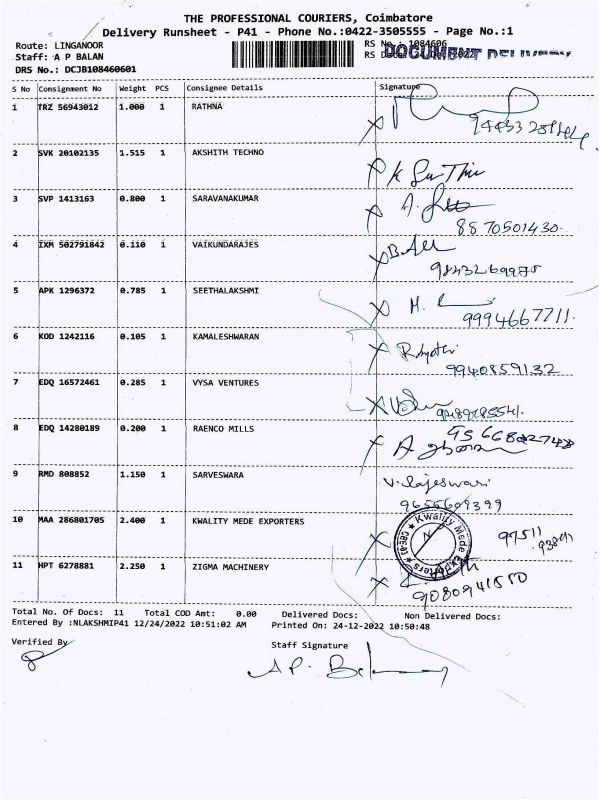 THE PROFESSIONAL COURIERS, Coimbatore
Delivery Runsheet - P41 - Phone No.:0422-3505555 - Page No.:1
Route: LINGANOOR
RS No.: 1084606
DOCUMENT DELIVERY
Staff: A P BALAN
RS Date:
DRS No.: DCJB108460601
S No Consignment No Weight PCS Consignee Details Signature
1 TRZ 56943012 1.000 1 RATHNA
2 SVK 20102135 1.515 1 AKSHITH TECHNO
3 SVP 1413163 0.800 1 SARAVANAKUMAR
8870501430.
4 IXM 502791842 0.110 1 VAIKUNDARAJES
9843269975
5 APK 1296372 0.785 1 SEETHALAKSHMI
9994667711.
6 KOD 1242116 0.105 1 KAMALESHWARAN
9940859132
7 EDQ 16572461 0.285 1 VYSA VENTURES
8 EDQ 14280189 0.200 1 RAENCO MILLS
9 RMD 808852 1.150 1 SARVESWARA
V. Rajeswari
9655609399
10 MAA 286801705 2.400 1 KWALITY MEDE EXPORTERS
Kwality Mede Exporters
11 HPT 6278881 2.250 1 ZIGMA MACHINERY
9080941550
Total No. Of Docs: 11 Total COD Amt: 0.00 Delivered Docs: Non Delivered Docs:
Entered By :NLAKSHMIP41 12/24/2022 10:51:02 AM Printed On: 24-12-2022 10:50:48
Verified By
Staff Signature
A.P. Balan